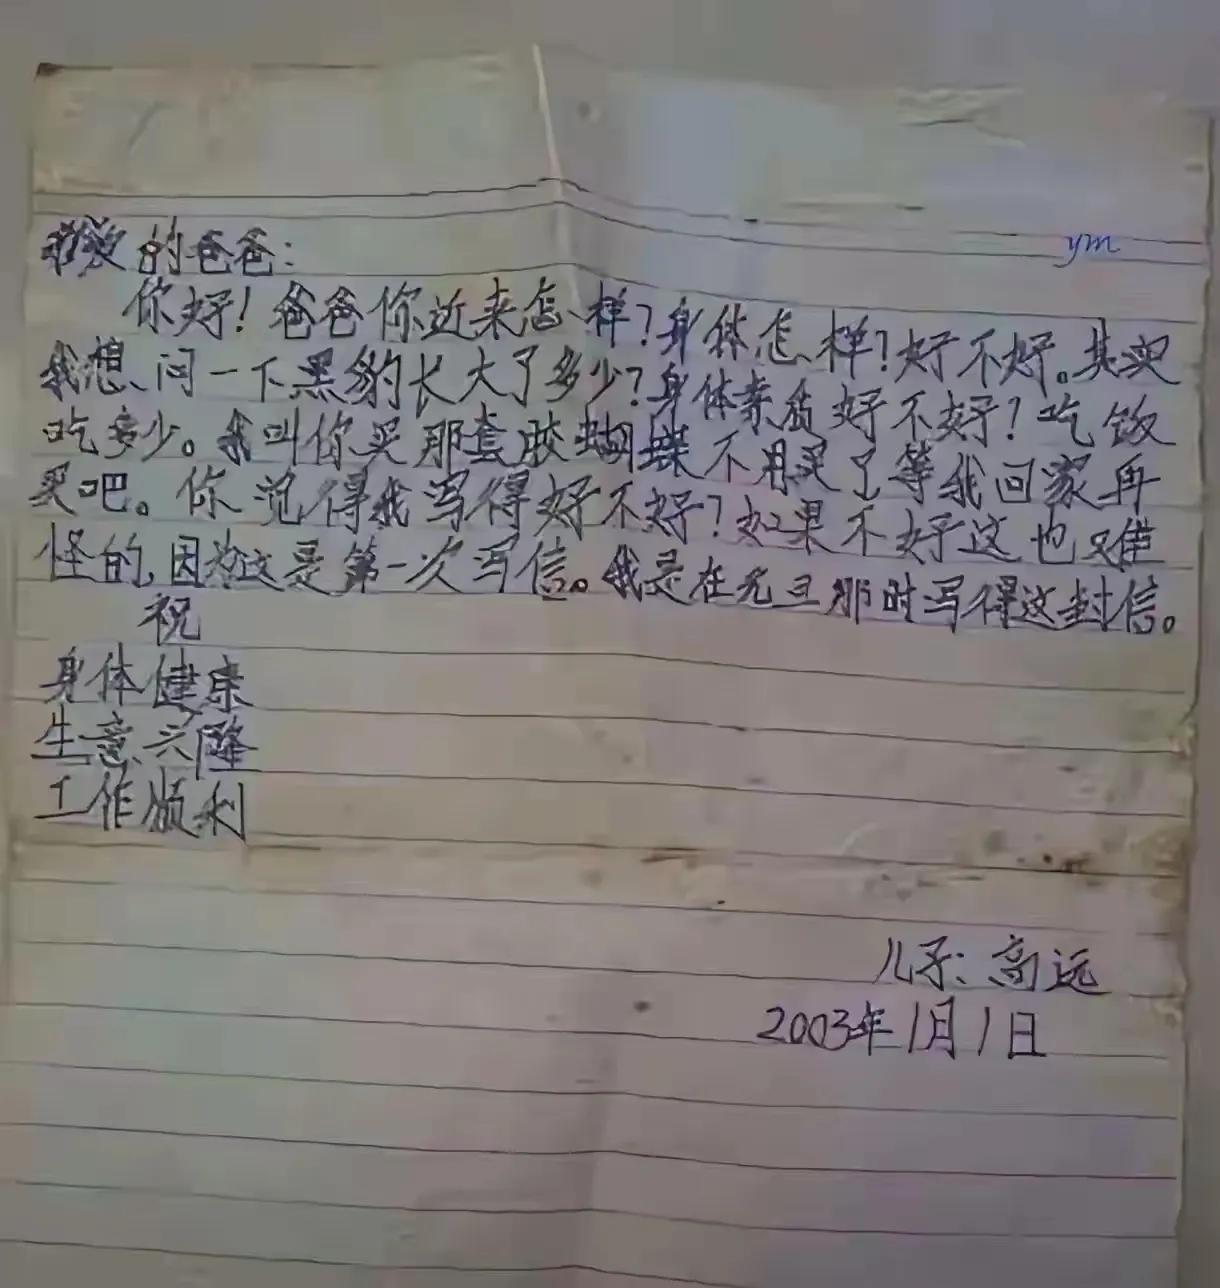 敬爱的爸爸:
ym
你好!爸爸你近来怎样?身体怎样?好不好。其实
我想问一下黑豹长大了多少?身体素质好不好?吃饭
吃多少。我叫你买那套胶蝴蝶不用买了等我回家再
买吧。你觉得我写得好不好?如果不好这也难
怪的,因为这是第一次写信。我是在元旦那时写得这封信。
祝
身体健康
生意兴隆
工作顺利
儿子:高远
2003年1月1日